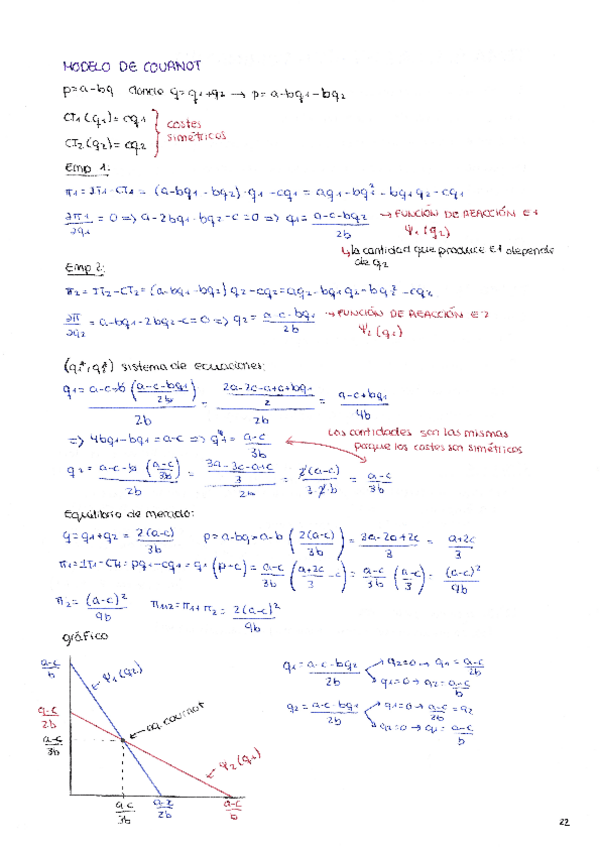 MODELO DE COURNOT
p=a-bq donde q=q1+q2 → p=a-bq1-bq2
CT1(q1)=cq1
CT2(q2)=cq2
costes simétricos
Emp 1:
π1=IT1-CT1=(a-bq1-bq2)·q1-cq1=aq1-bq1²-bq1q2-cq1
∂π1/∂q1=0 => a-2bq1-bq2-c=0 => q1=(a-c-bq2)/2b → FUNCIÓN DE REACCIÓN E1
Ψ1(q2)
↳ la cantidad que produce E1 depende
de q2
Emp 2:
π2=IT2-CT2=(a-bq1-bq2)q2-cq2=aq2-bq1q2-bq2²-cq2
∂π/∂q2=a-bq1-2bq2-c=0 => q2=(a-c-bq1)/2b → FUNCIÓN DE REACCIÓN E2
Ψ2(q1)
(q1*,q2*) sistema de ecuaciones:
q1=(a-c-b((a-c-bq1)/2b))/2b=((2a-2c-a+c+bq1)/2)/2b=(a-c+bq1)/4b
=> 4bq1-bq1=a-c => q1*=(a-c)/3b
Las cantidades son las mismas
porque los costes son simétricos
q2=(a-c-b((a-c)/3b))/2b=((3a-3c-a+c)/3)/2b=2(a-c)/3·2b=(a-c)/3b
Equilibrio de mercado:
q=q1+q2=2(a-c)/3b p=a-bq=a-b(2(a-c)/3b)=(3a-2a+2c)/3=(a+2c)/3
π1=IT1-CT1=pq1-cq1=q1(p-c)=(a-c)/3b((a+2c)/3-c)=(a-c)/3b((a-c)/3)=(a-c)²/9b
π2=(a-c)²/9b π1+2=π1+π2=2(a-c)²/9b
gráfico
(a-c)/b
Ψ1(q2)
q1=(a-c-bq2)/2b
q2=0 → q1=(a-c)/2b
q1=0 → q2=(a-c)/b
(a-c)/2b
eq. cournot
q2=(a-c-bq1)/2b
q1=0 → (a-c)/2b=q2
q2=0 → q1=(a-c)/b
(a-c)/3b
Ψ2(q1)
(a-c)/3b (a-c)/2b (a-c)/b
22